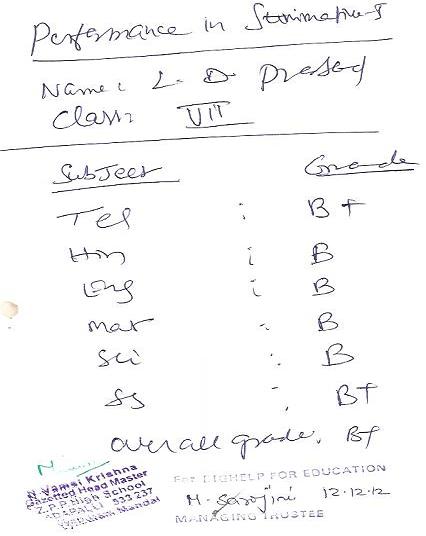 Performance in Summative-I
Name: L. D. Prasad
Class: VII
SubJect Grade
Tel : B+
Hin : B
Eng : B
Mat : B
Sci : B
SS : B+
overall grade. B+
N. Vamsi Krishna
Gazetted Head Master
Z.P.P. High School
533 237
Mandal
For LIGHELP FOR EDUCATION
M. Sarojini 12.12.12
MANAGING TRUSTEE